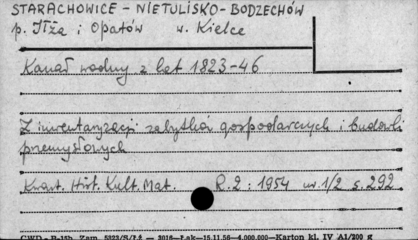 STARACHOWICE - NIETULISKO - BODZECHÓW
p. Iłża i Opatów w. Kielce
Kanał wodny z lat 1823-46
Z inwentaryzacji zabytków gospodarczych i budowli
przemysłowych
Kwart. Hist. Kult. Mat. R.2: 1954 nr. 1/2 s. 292
CWD - B-15h Zam. 5323/S/ — 3016 — Łak — 15.11.56 — 4.000.000 — Karton kl. IV A1/200 g